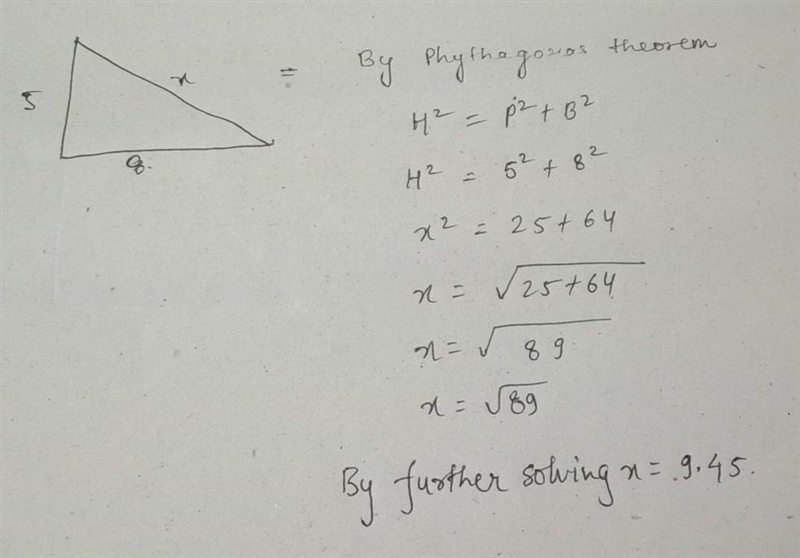 5
x
8.
= By Phythagoras theorem
H² = P² + B²
H² = 5² + 8²
x² = 25+64
x = √25+64
x = √89
x = √89
By further solving x = 9.45.